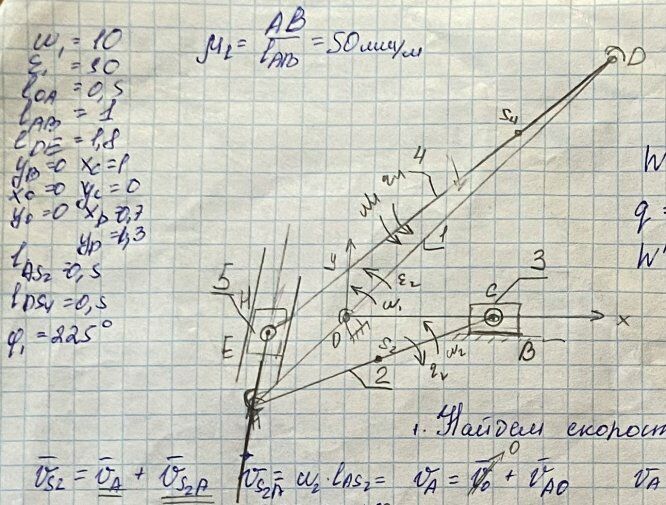 ω₁ = 10
ε₁ = 30
l_OA = 0,5
l_AB = 1
l_DE = 1,8
y_B = 0 x_C = 1
x_O = 0 y_C = 0
y_O = 0 x_D = 0,7
y_D = 1,3
l_AS₂ = 0,5
l_DS₄ = 0,5
φ₁ = 225°
μ_l = AB / l_AB = 50 мм/м
D
S₄
4
1
y
ε₂
ω₁
5
H
E
O
3
C
x
B
S₂
2
A
1. Найдем скорост
v̄_S2 = v̄_A + v̄_S2A v̄_S2A = ω₂ · l_AS2 = v̄_A = v̄_O + v̄_AO v̄_A
0
W
q =
W